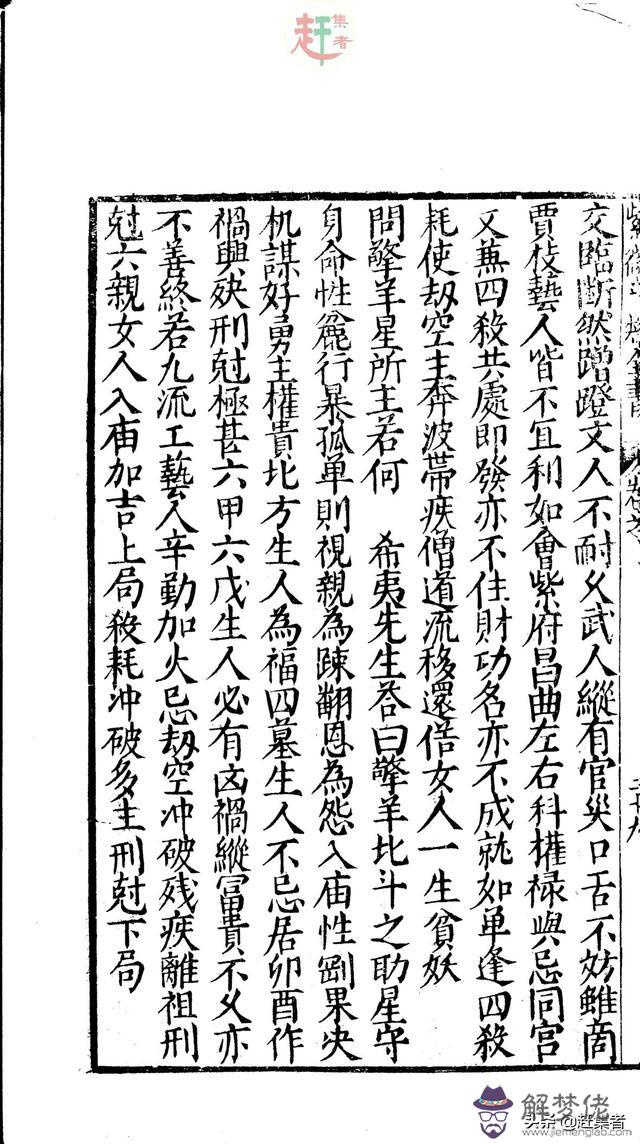 赶集者
交臨断然蹭蹬文人不耐久武人縱有官災口舌不妨雖商
賈技藝人皆不宜利如會紫府昌曲左右科權禄與忌同宫
又兼四殺共處即發亦不住財功名亦不成就如单逢四殺
耗使刼空主奔波帶疾僧道流移還俗女人一生貧妖
問擎羊星所主若何 希夷先生荅曰擎羊北斗之助星守
身命性麄行暴孤单則視親為踈翻恩為怨入庙性剛果决
机謀好勇主權貴北方生人為福四墓生人不忌居卯酉作
禍興殃刑尅極甚六甲六戊生人必有凶禍縱冨貴不久亦
不善終若九流工藝人辛勤加火忌刼空冲破残疾離祖刑
尅六親女人入庙加吉上局殺耗冲破多主刑尅下局
解梦佬
www.jiemenglab.com
头条@赶集者